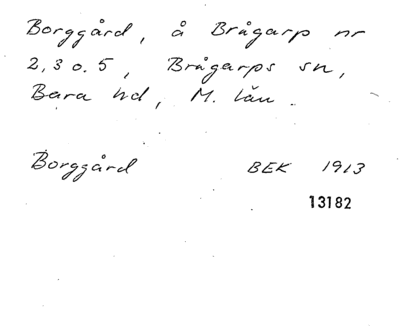 Borggård, å Brågarp nr
2,3 o. 5, Brågarps sn,
Bara hd, M. län.
Borggård BEK 1913
13182